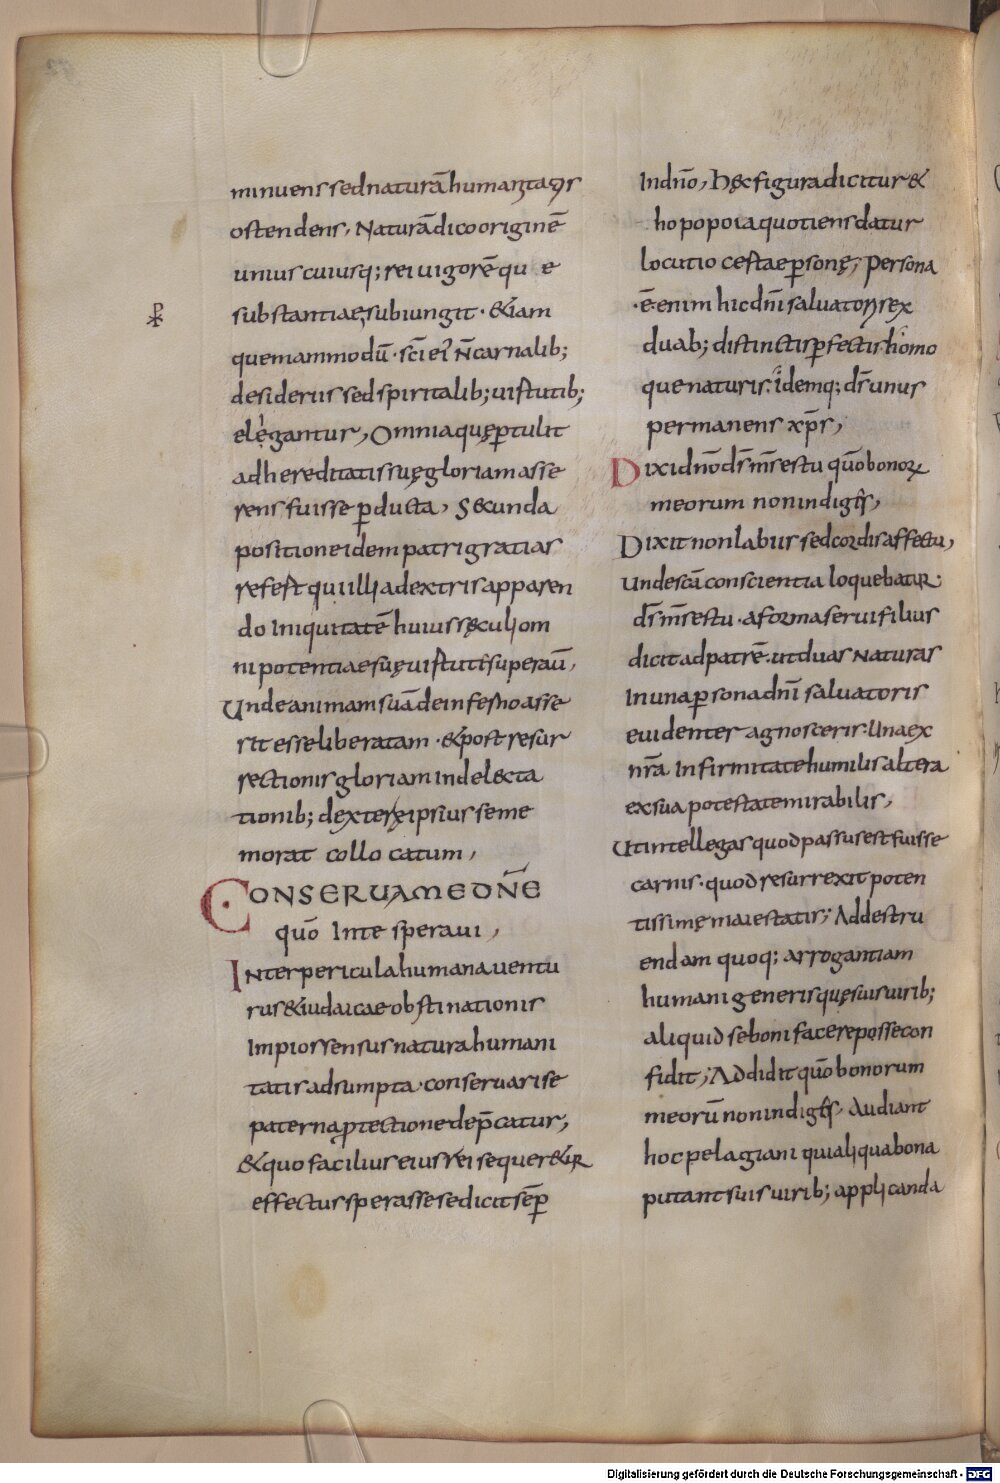 minuens sed naturā humanitatis
ostendens, Naturā dico originē
unius cuiusq; rei uigorē qu e
substantiae subiungit · &iam
quemammodū · sc̄i ei n̄ carnalib;
desideriis sed spiritalib; uirtutib;
elegantur, Omnia quę ꝑtulit
ad hereditatis suę gloriam asse
rens fuisse ꝑducta, S&unda
positione idem patri gratias
refert qui illi ad extris apparen
do Iniquitatē huius sęculi om
nipotentiae suę uirtute superauit,
Unde animam suā de inferno asse
rit esse liberatam · & post resur
rectionis gloriam in delecta
tionib; dexterę ipsius se me
morat collocatum,
CONSERUA ME DN̄E
qūo Inte speraui,
Inter pericula humana uentu
rus & iudaicae obstinationis
Impios sensus natura humani
tatis adsumpta · conseruari se
paterna ꝓtectione dep̄catur,
& quo facilius eius rei sequer&ur
effectus sperasse se dicit semꝑ
In dn̄o, Hęc figura dicitur &
hopopoia quotiens datur
locutio certae ꝑsonę, Persona
·ē· enim hic dn̄i saluatoris ex
duab; distinctis ꝑfectis homo
que naturis. Idemq; ds̄ unus
permanens xp̄s,
Dixi dn̄o ds̄ ms̄ es tu qūo bonoꝝ
meorum non indiges,
Dixit non labiis sed cordis affectu,
Unde sc̄a conscientia loquebatur
ds̄ ms̄ es tu · a forma serui filius
dicit ad patrē · ut duas Naturas
In una ꝑsona dn̄i saluatoris
euidenter agnosceris · Una ex
nr̄a Infirmitate humilis altera
ex sua potestate mirabilis,
Ut intellegas quod passus est fuisse
carnis · quod resurrexit poten
tissimę maiestatis; Ad destru
endam quoq; arrogantiam
humani generis quę suis uirib;
aliquid se boni facere posse con
fidit; Addidit qūo bonorum
meorū non indiges, Audiant
hoc pelagiani qui aliqua bona
putant suis uirib; applicanda
Digitalisierung gefördert durch die Deutsche Forschungsgemeinschaft - DFG